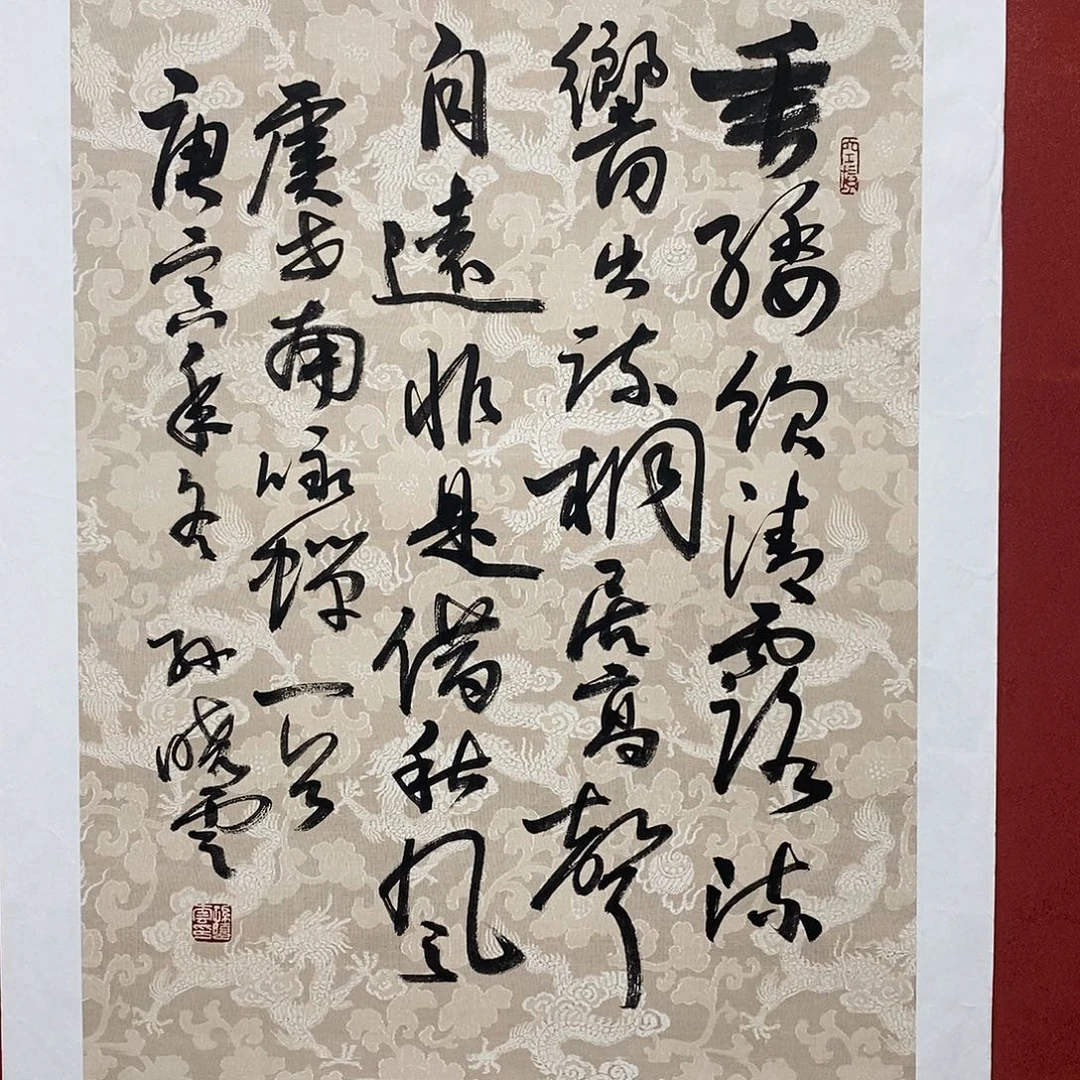 垂緌飲清露流
響出疏桐居高聲
自遠非是借秋風
虞世南咏蟬一首
庚寅年冬 孫曉雲
孫曉雲印